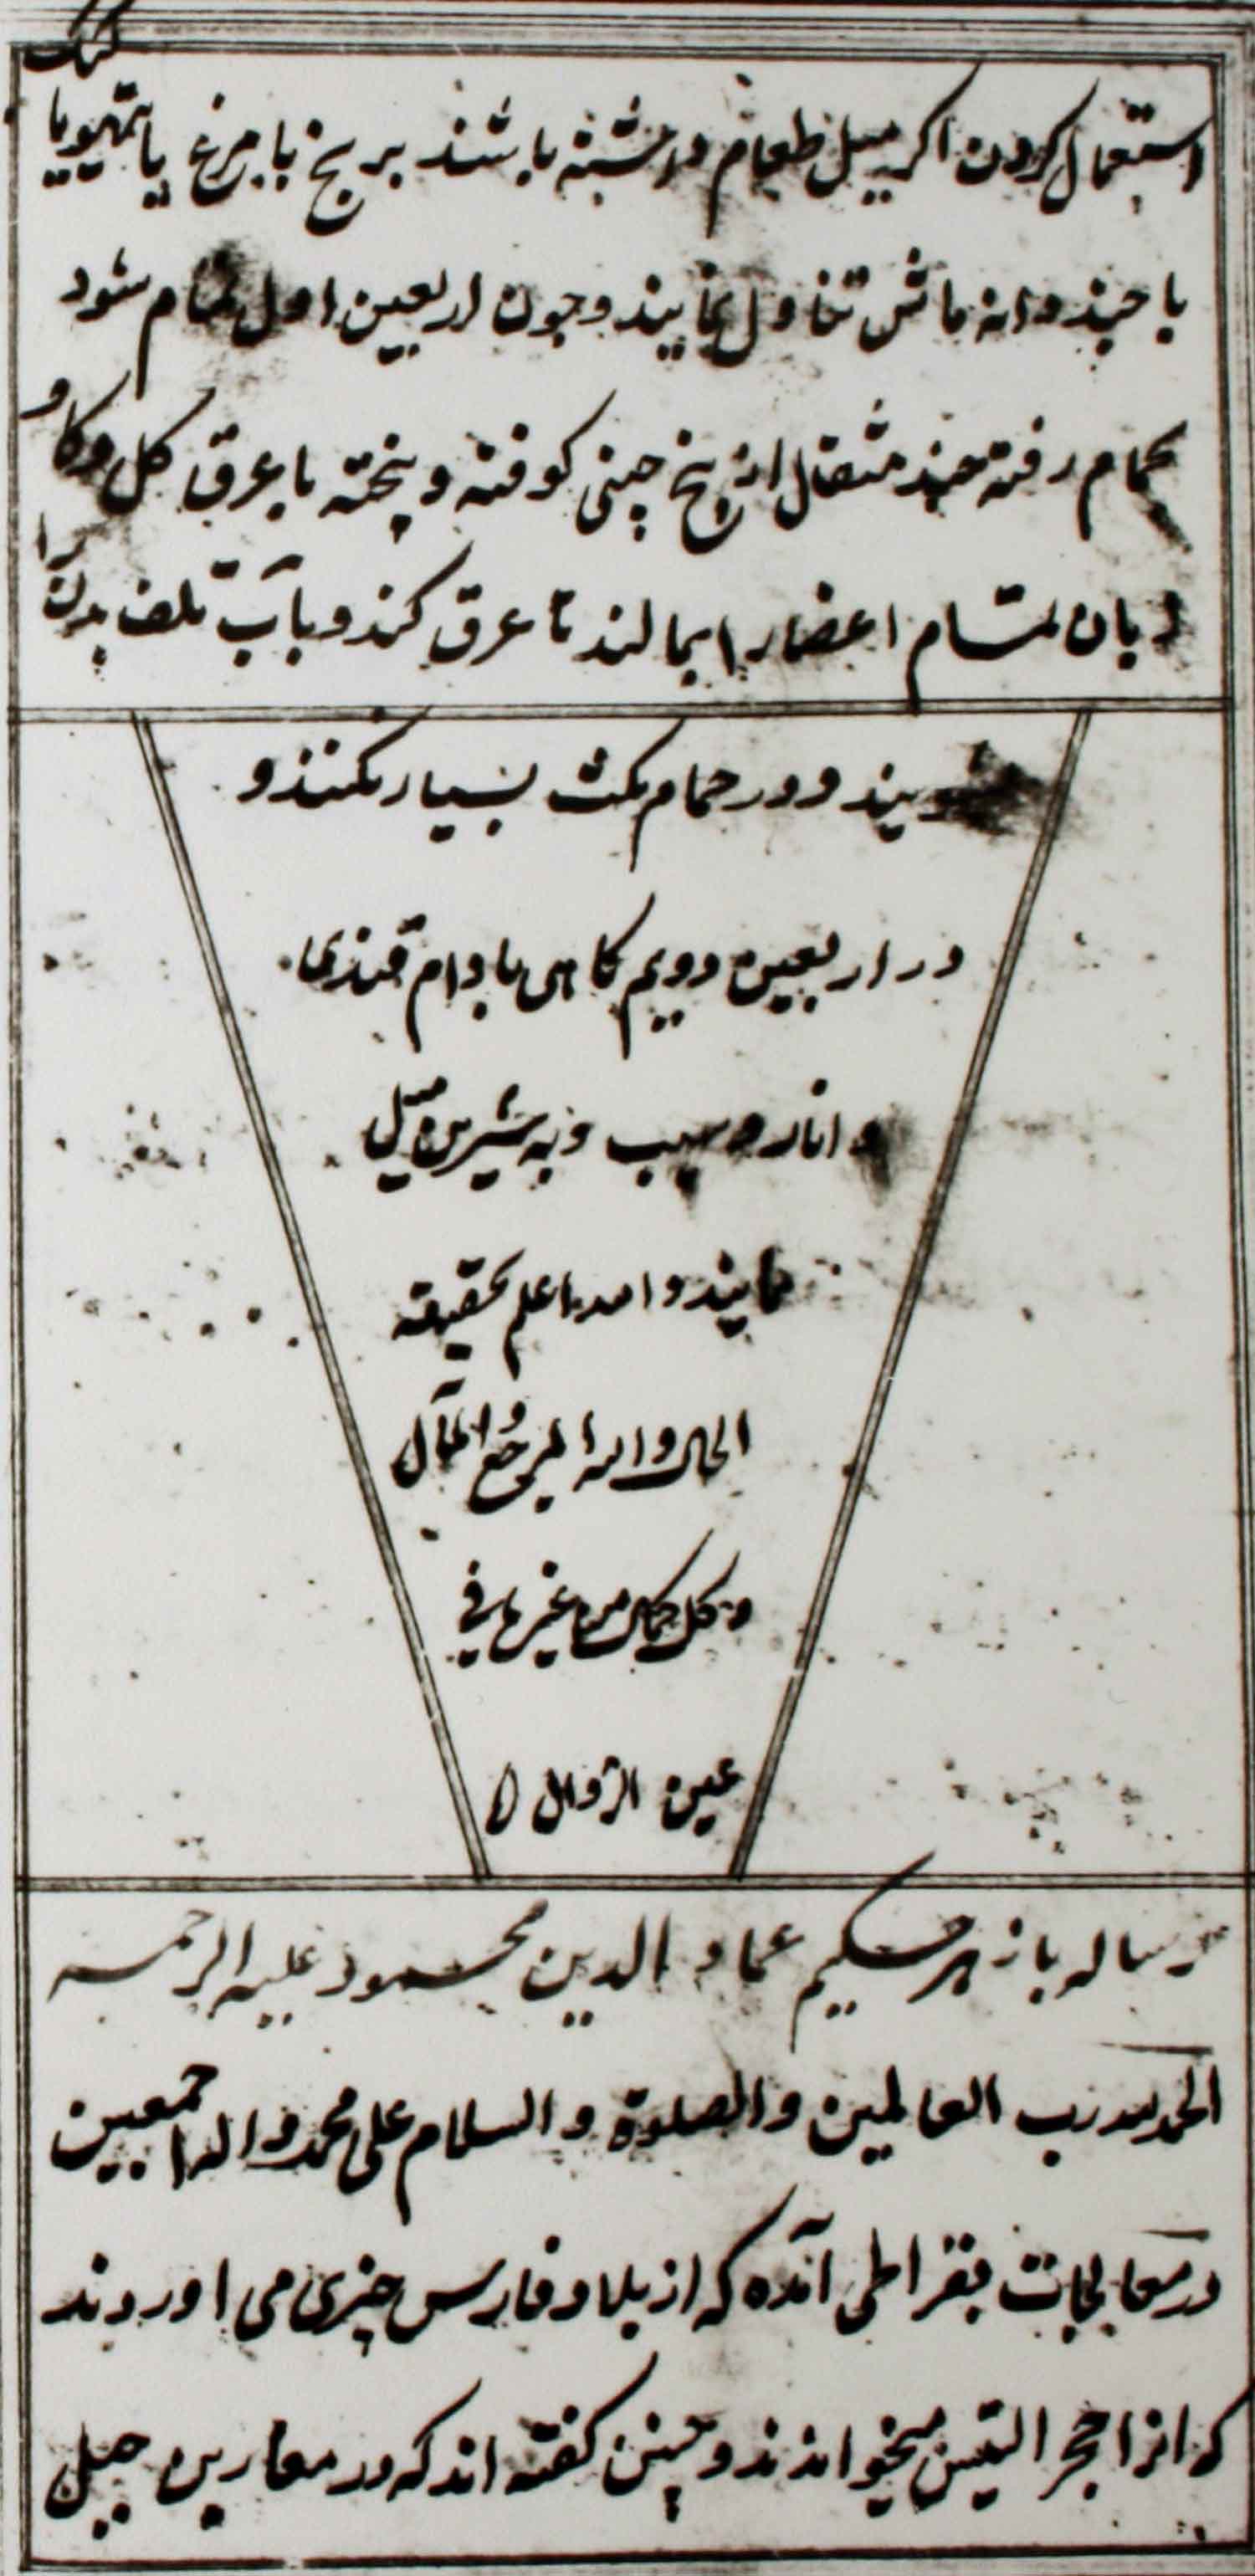 کبک
استعمال کردن اکر میل طعام داشته باشند برنج با مرغ یا تیهو یا
با چند دانه ماش تناول نمایند و چون اربعین اول تمام شود
بحمام رفته چند مثقال از بیخ چینی کوفته و پخته با عرق کل و کاو
زبان بتمام اعضا را بمالند تا عرق کند و بآب بدن را
بشویند و در حمام مکث بسیار نکنند و
در اربعین دویم کاهی بادام قندی
و انار و سیب و به شیرین میل
نمایند و الله اعلم بحقیقه
الحال والیه المرجع و المآل
و کل کمال من غیره فی
عین الزوال ه
رساله بازهر حکیم عماد الدین محمود علیه الرحمه
الحمد لله رب العالمین والصلوة والسلام علی محمد واله اجمعین
در معالجات بقراطی آمده که از بلاد فارس چیزی می اوردند
که انرا حجر التیس میخواندند و چنین کفته اند که در مصارین جبل